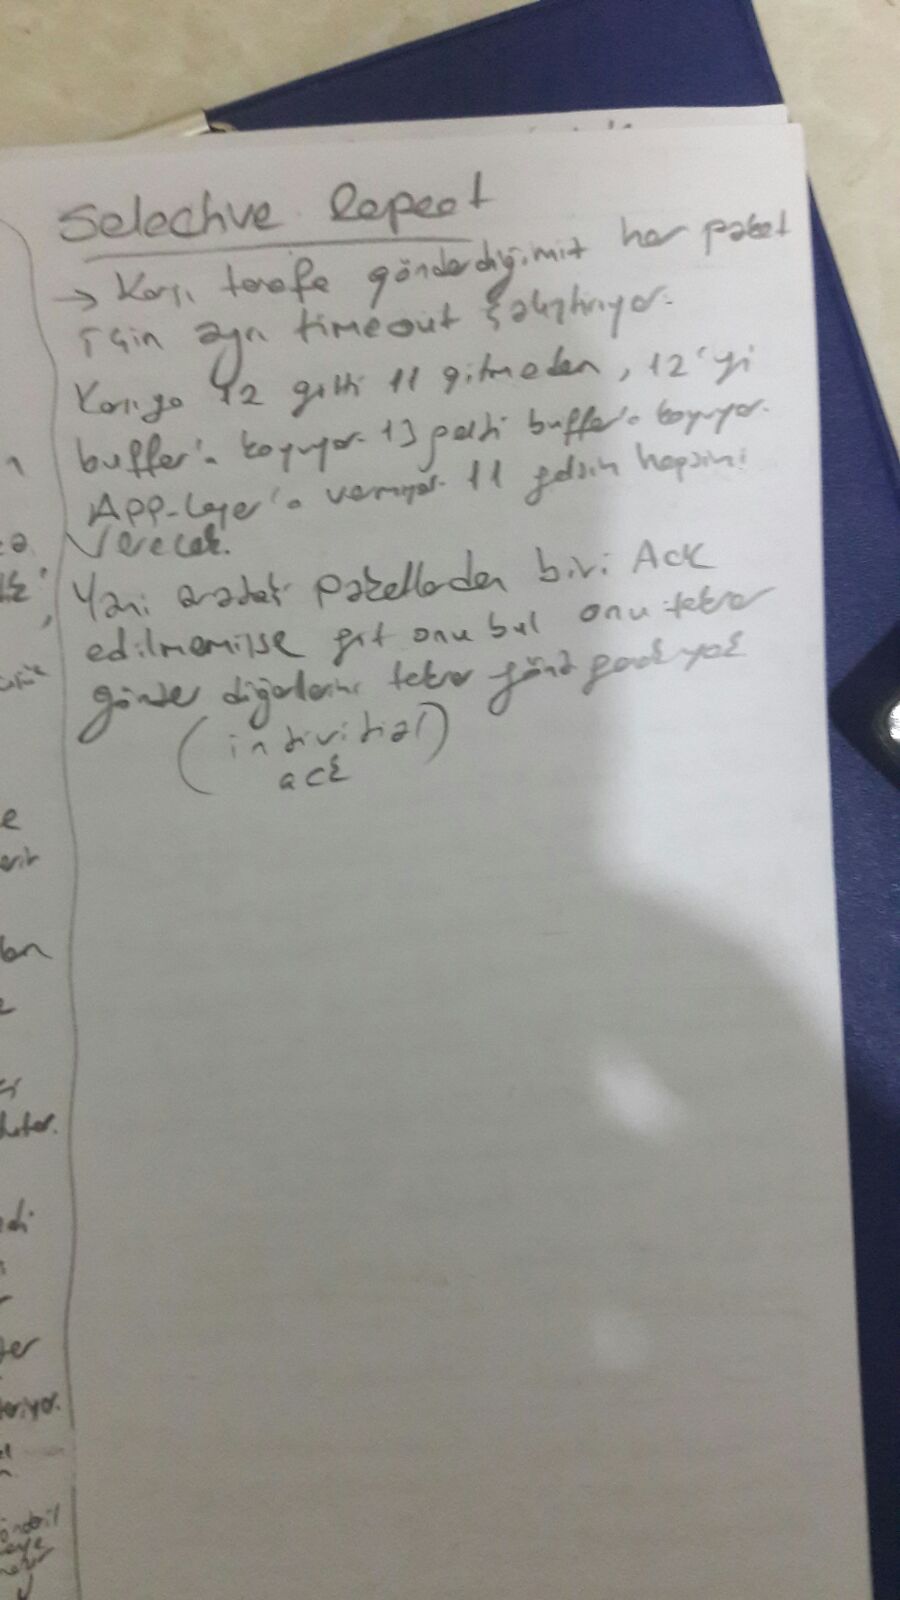 Selective Repeat
→ Karşı tarafa gönderdiğimiz her paket
için ayrı timeout çalıştırıyor.
Karşıya 12 gitti 11 gitmeden, 12'yi
buffer'a koyuyor. 13 geldi buffer'a koyuyor.
App-Layer'a vermiyor. 11 gelsin hepsini
Verecek.
Yani aradaki paketlerden biri Ack
edilmemişse git onu bul onu tekrar
gönder diğerlerini tekrar gönd gerek yok
(individial)
ack